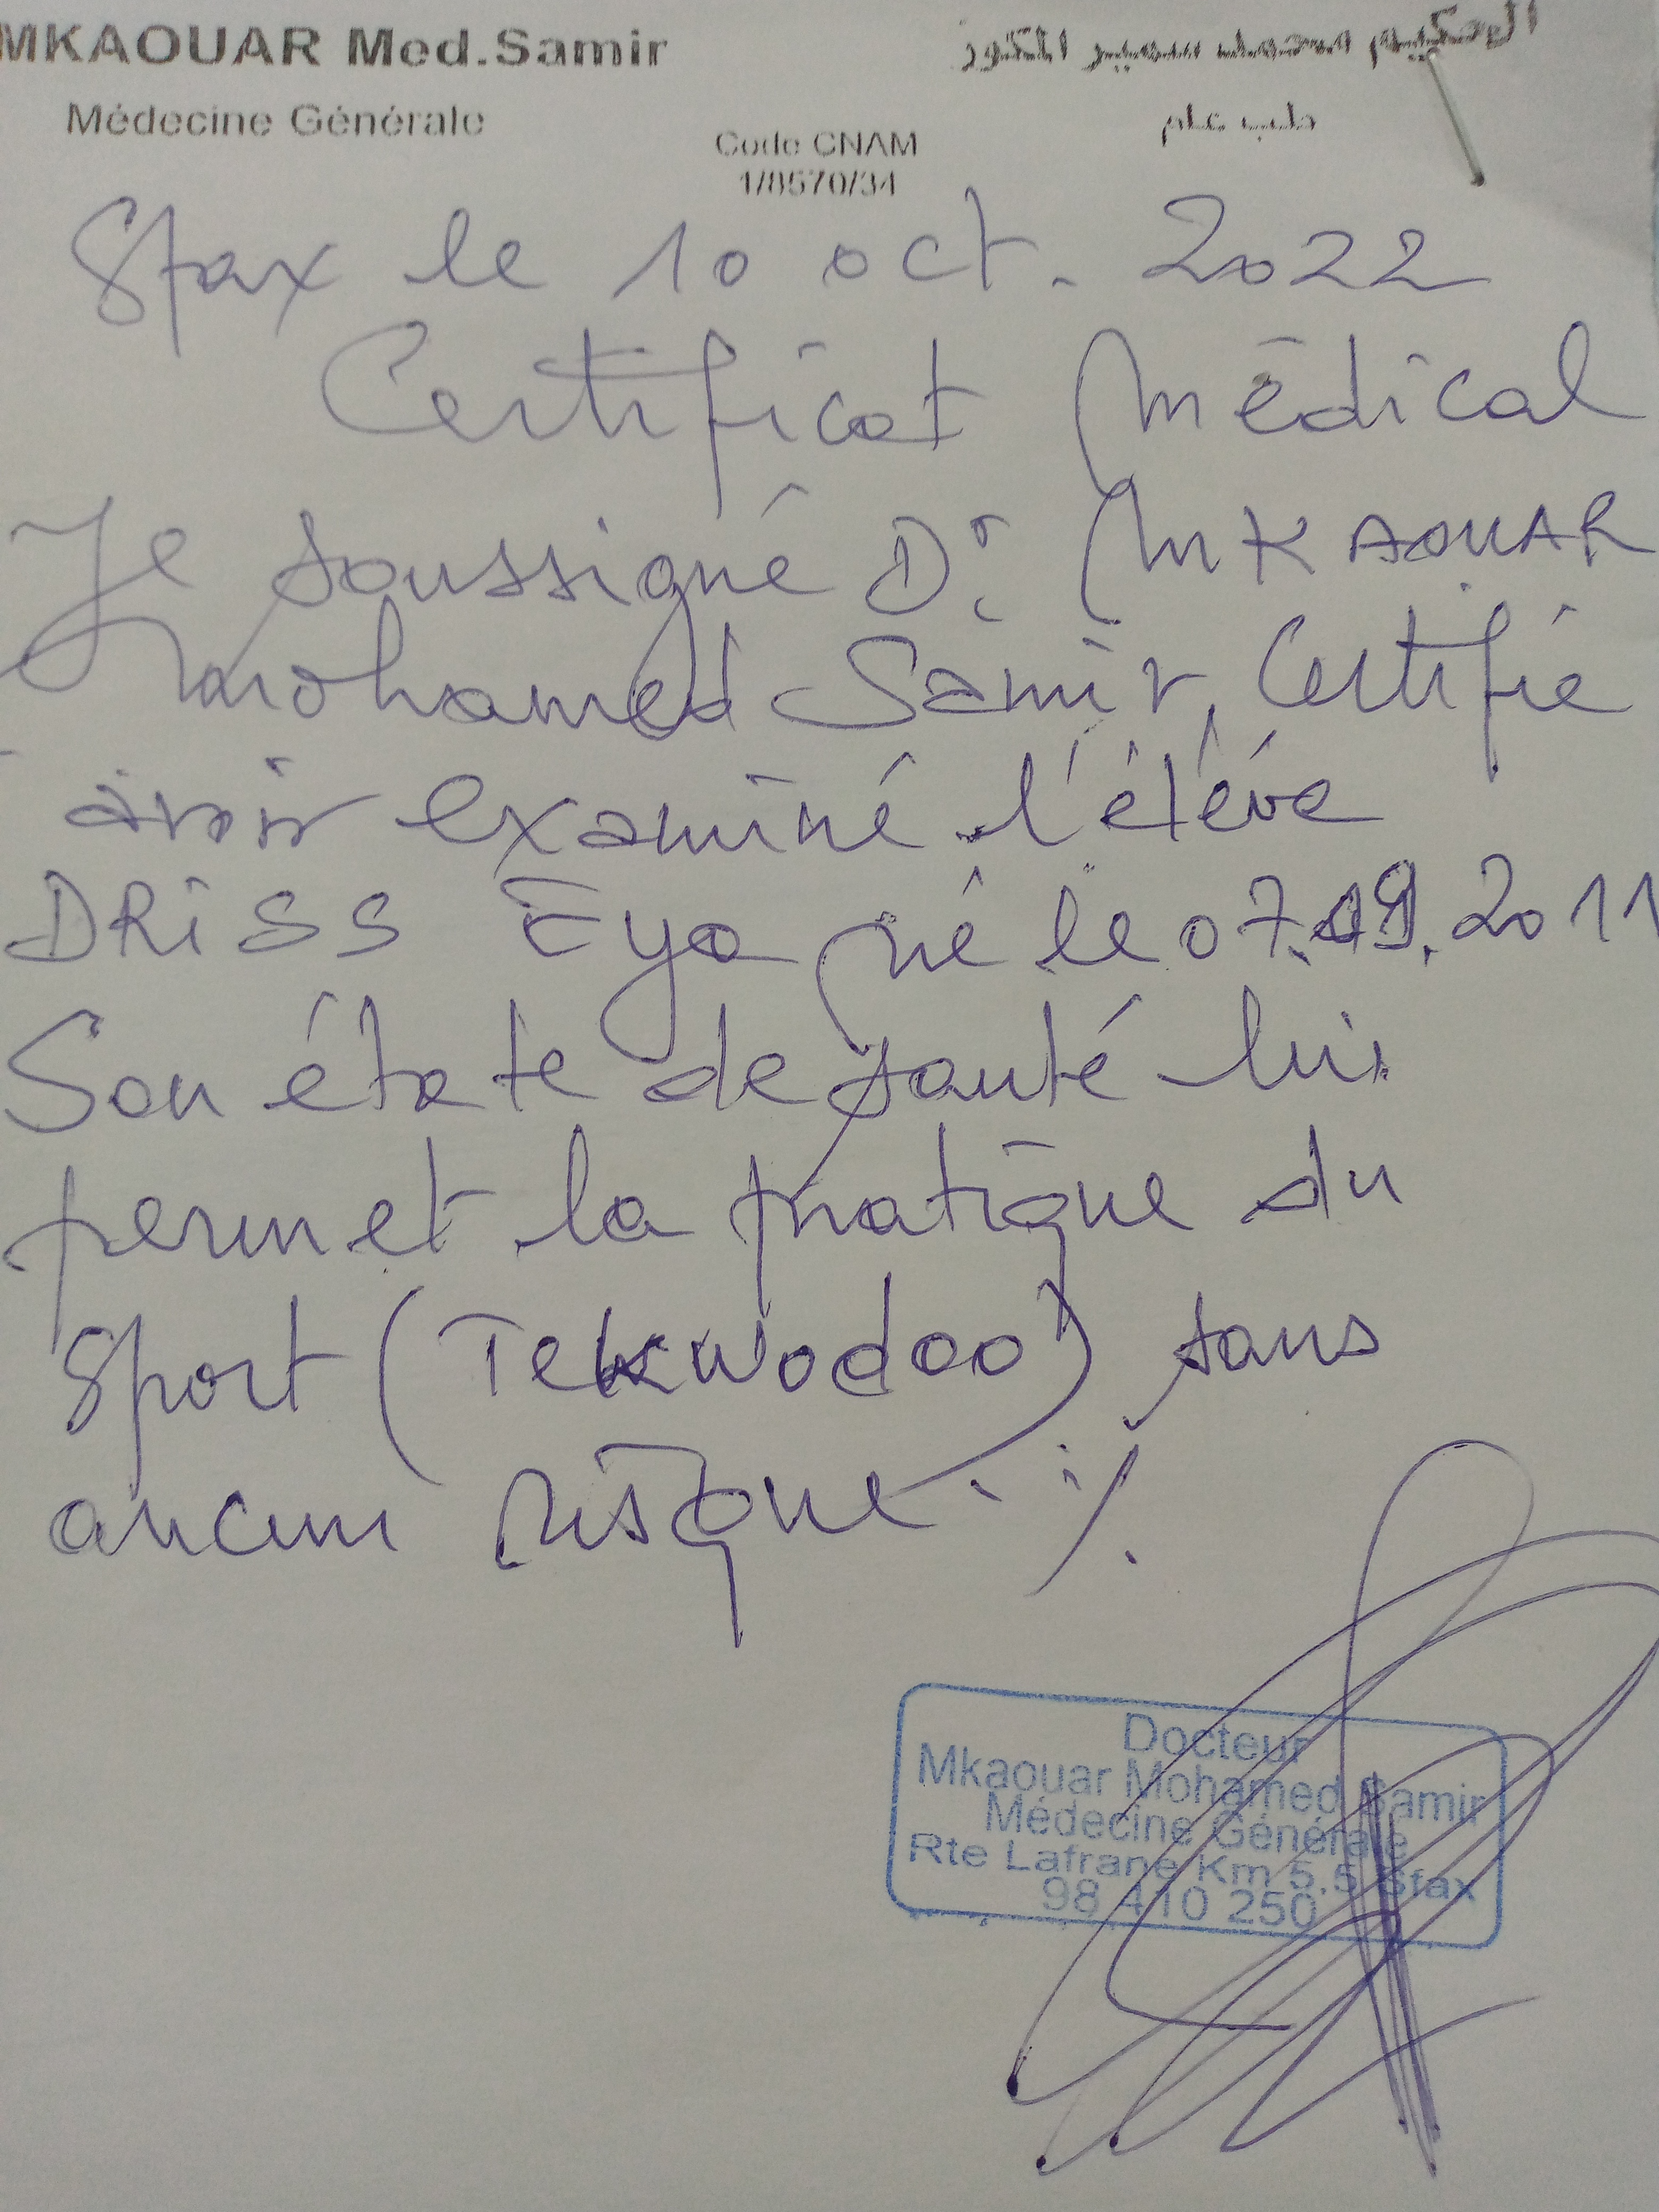 MKAOUAR Med.Samir
الحكيم محمد سمير المكور
Médecine Générale
طب عام
Code CNAM
1/8570/34
Sfax le 10 oct. 2022
Certificat Médical
Je soussigné Dr: MKAOUAR
Mohamed Samir, Certifie
avoir examiné l'éléve
DRiSS Eya né le 07.09.2011
Son état e de santé lui
permet la pratique du
Sport (Tekwodoo) sans
aucun risque. ·/.
Docteur
Mkaouar Mohamed Samir
Médecine Générale
Rte Lafrane Km 5,5 Sfax
98 410 250